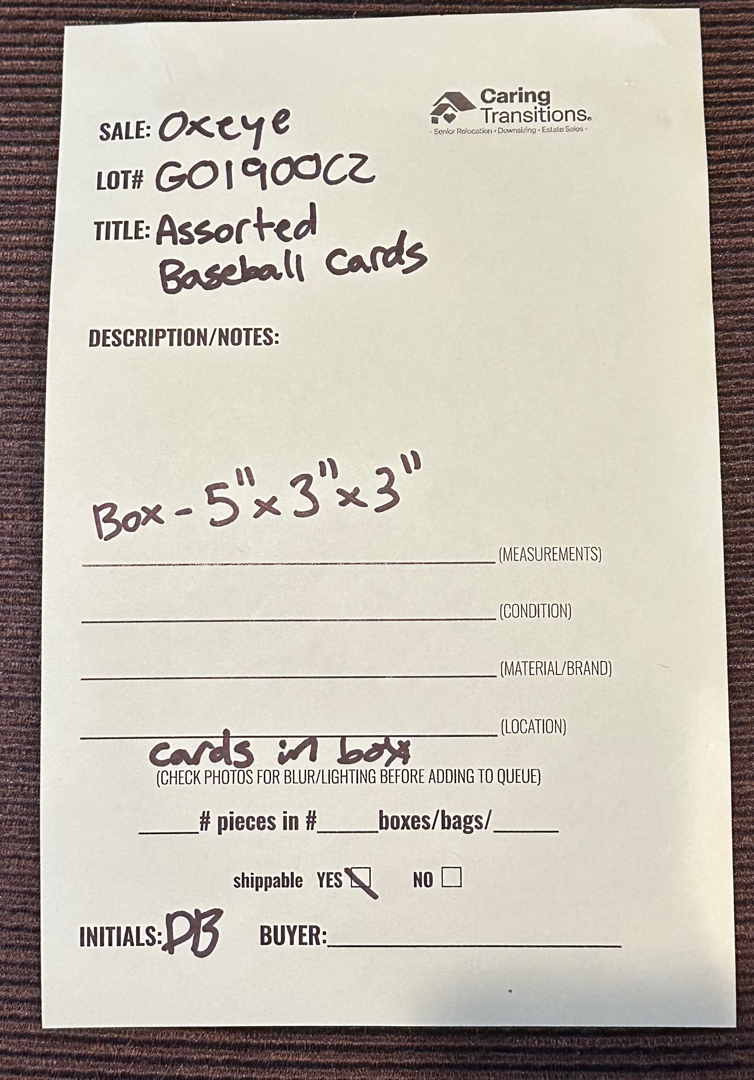 Caring
Transitions.
- Senior Relocation • Downsizing • Estate Sales -
SALE: Oxeye
LOT# GO1900C2
TITLE: Assorted
Baseball Cards
DESCRIPTION/NOTES:
Box - 5" x 3" x 3"
(MEASUREMENTS)
(CONDITION)
(MATERIAL/BRAND)
(LOCATION)
cards in box
(CHECK PHOTOS FOR BLUR/LIGHTING BEFORE ADDING TO QUEUE)
____# pieces in #____boxes/bags/____
shippable YES NO
INITIALS: DB BUYER:____